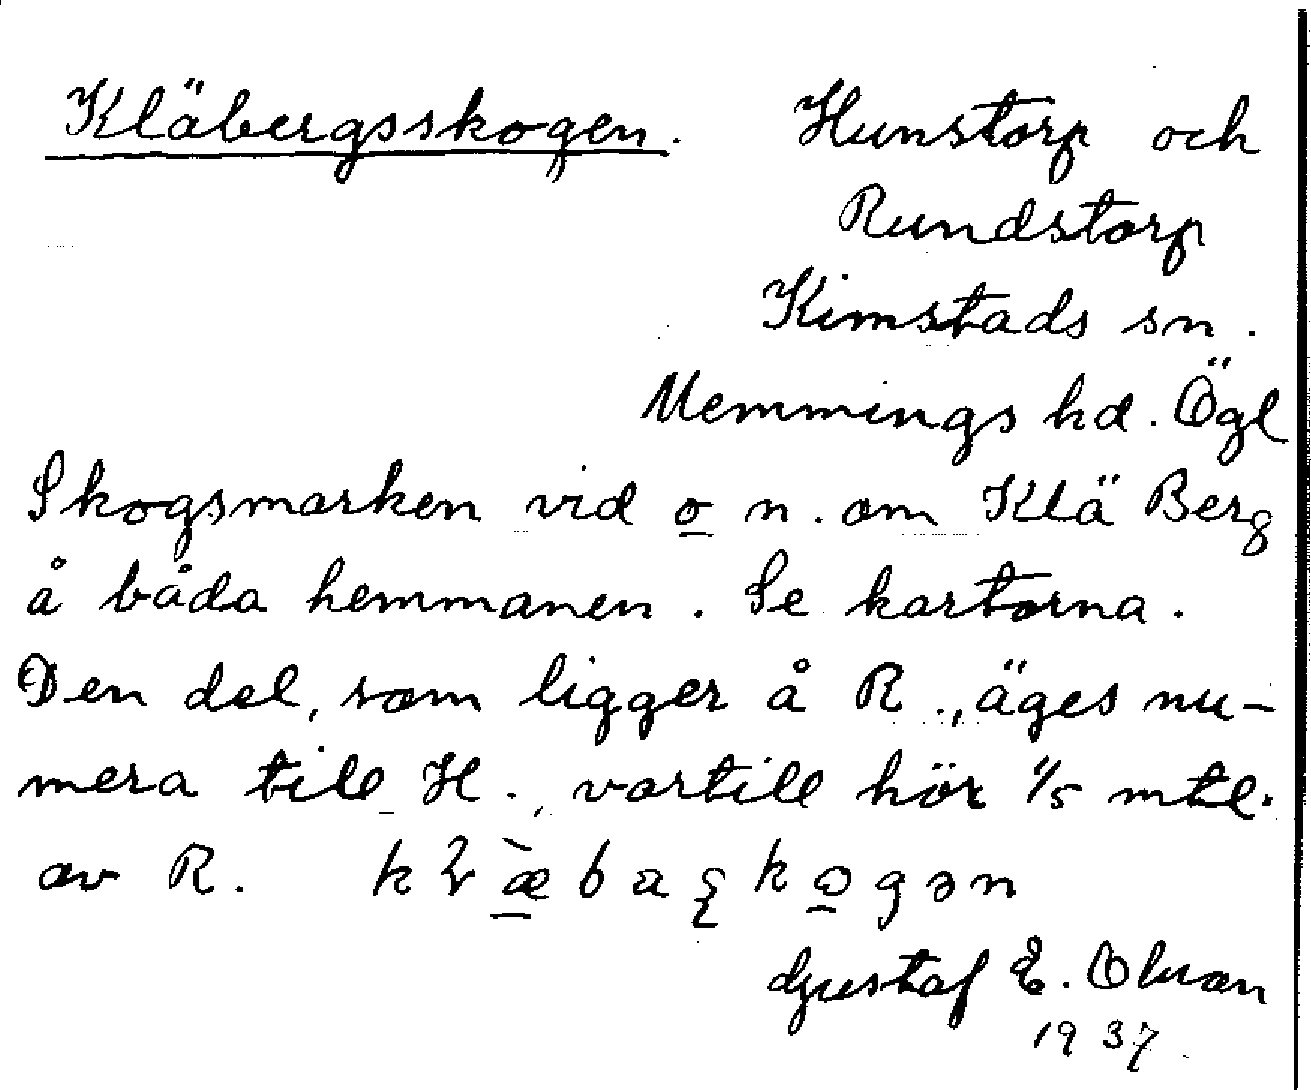 Kläbergsskogen. Hunstorp och
Rundstorp
Kimstads sn.
Memmings hd. Ögl
Skogsmarken vid o n. om Klä Berg
å båda hemmanen. Se kartorna.
Den del, som ligger å R., äges nu-
mera till H., vartill hör 1/5 mtl.
av R.
Gustaf E. Olson
1937